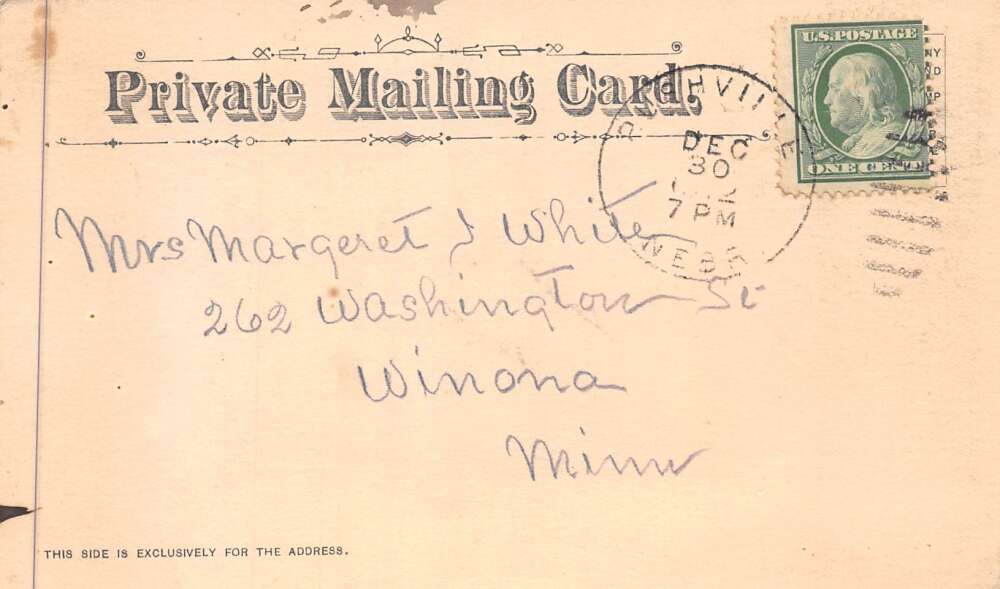 Private Mailing Card.
U.S. POSTAGE
ONE CENT
RUSHVILLE
DEC
30
7 PM
NEBR
Mrs Margeret J White
262 Washington St
Winona
Minn
THIS SIDE IS EXCLUSIVELY FOR THE ADDRESS.